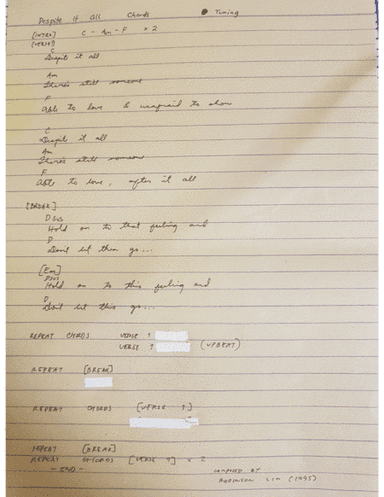 Despite It All Chords Tuning
[INTRO] C - Am - F × 2
[VERSE]
C
Despite it all
Am
There's still someone
F
Able to love & unafraid to show
C
Despite it all
Am
There's still someone
F
Able to love, after it all
[BREAK]
D sus
Hold on to that feeling and
D
Don't let them go...
[Em]
Dsus
Hold on to this feeling and
D
Don't let this go...
REPEAT CHORDS VERSE
VERSE (UPBEAT)
REPEAT [BREAK]
REPEAT CHORDS [VERSE ]
REPEAT [BREAK]
REPEAT CHORDS [VERSE ] × 2
- END - COMPOSED BY
ROBINSON LIM (1995)